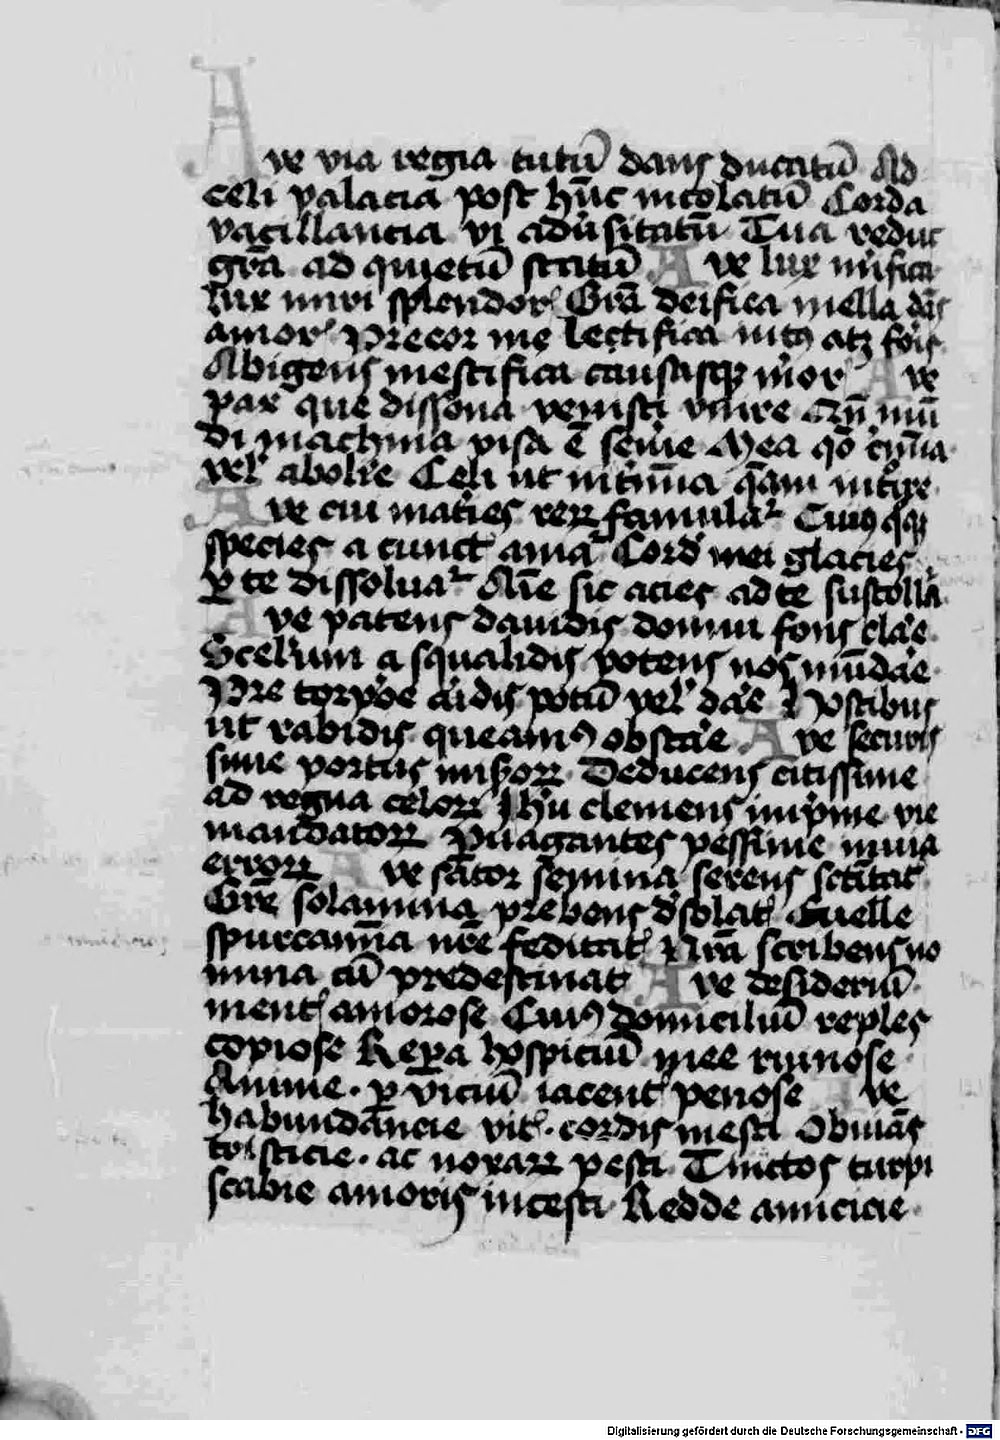 Ave via regia tutū dans ducatū Ad
celi palaciā post hūc incolatū Corda
vacillancia vi adūsitatū Tua reduc
grā ad quietū statū Ave lux mīfica
lux miri splendor Grā deifica mella dās
amor Precor me lectifica intꝰ atqꝫ foris
Abigens mestifica causasqꝫ mīor Ave
pax que dissona venisti vnire Cū mū
di machina visa ē seīre Mea qō cīna
vel abolīe Celi ut intīna qām intīre
Ave cui māties reꝝ famulaʳ Cuiꝰ qꝫ
species a cunct amaʳ Cord mei glacies
ꝑ te dissoluaʳ Aīe sic acies ad te sustollaʳ
Ave patens dauidis domui fons claʳe
Scelerum a squalidis potens nos mūdaʳe
Pre corpōe aridis potū vel daʳe Hostibus
ut rabidis queamꝰ obstaʳe Ave securis
sime portus miꝝoꝝ Deducens citissime
ad regna celoꝝ Ihu clemens imprime vie
mandatoꝝ Puagantes pessime inuia
erroꝝ Ave sator semina serens sctitat
Grē solamina prebens dsolat Euelle
spurcamīa nrē feditat Nrā scribens no
mina cū predestinat Ave desideriū
ment amorose Cuiꝰ domiciliū reples
copiose Repa hospiciū mee ruinose
Anime · ꝑ viciū iacent penose Ave
habundancie vit · cordis mesti Obuiās
tristicie · ac noxaꝝ pesti Tinctos turpi
scabie amoris incesti Redde amicicie
Digitalisierung gefördert durch die Deutsche Forschungsgemeinschaft - DFG